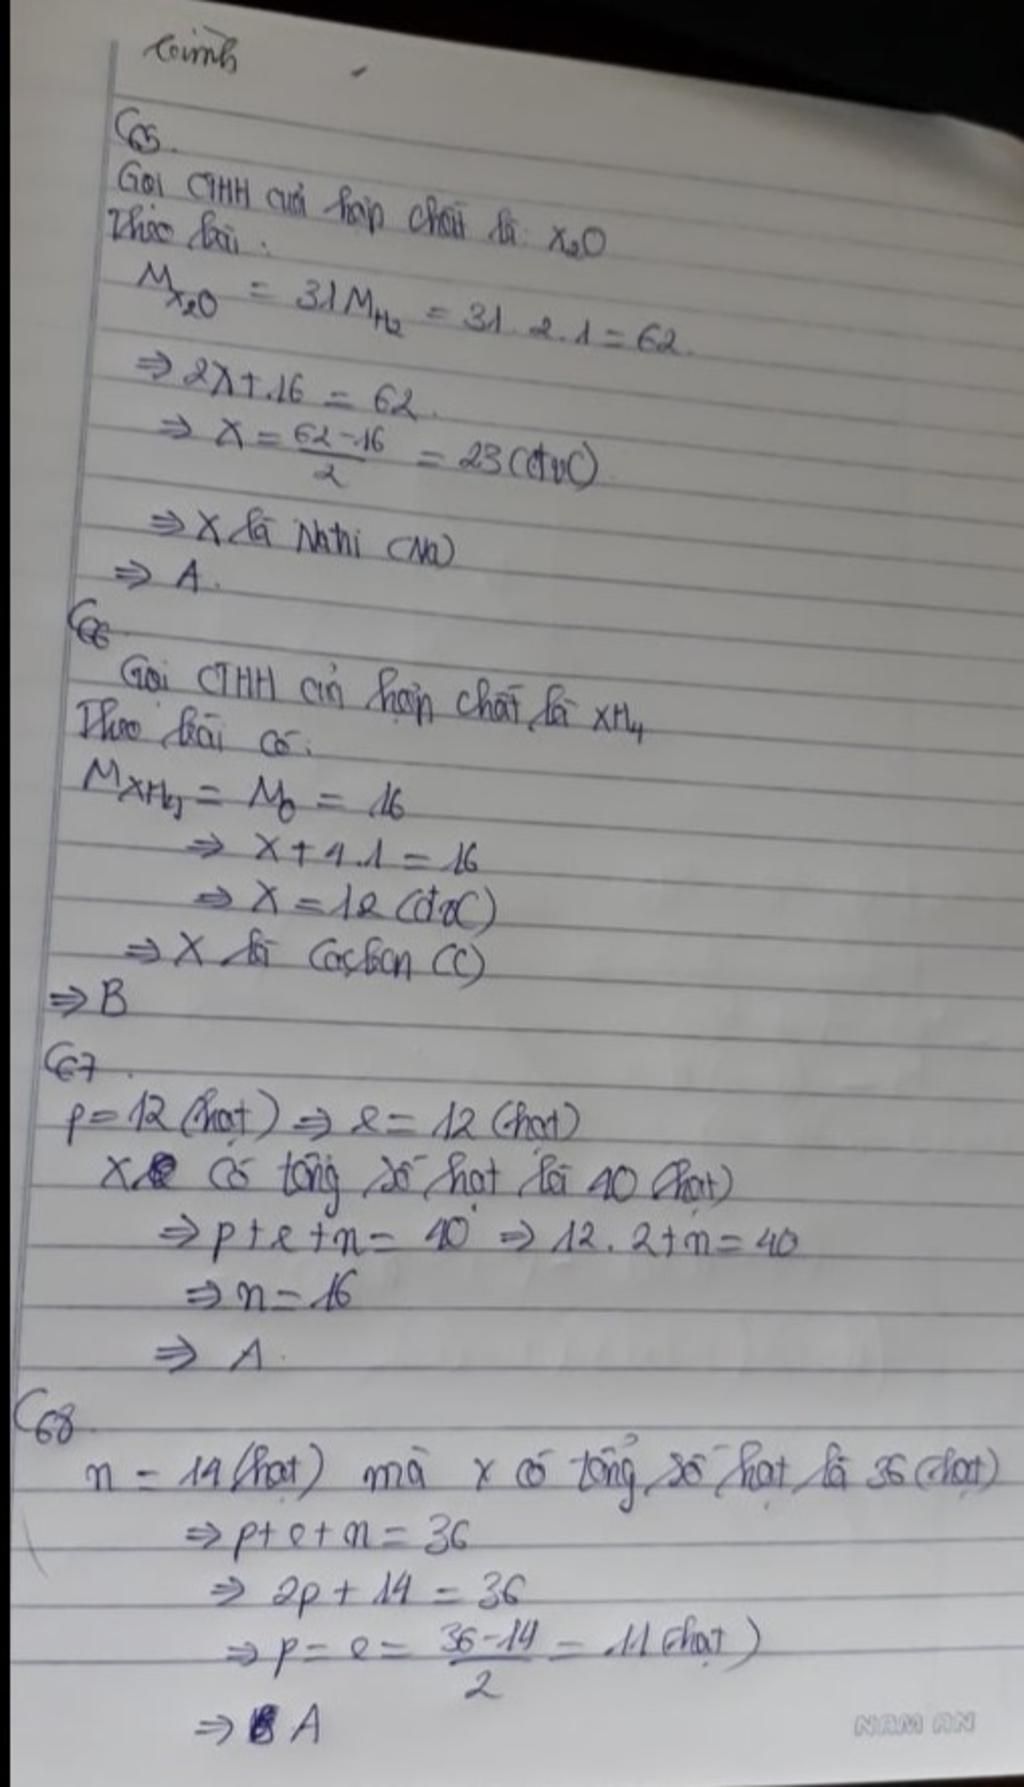 C65.
Gọi CTHH của hợp chất là: X₂O
Theo bài:
M_X₂O = 31M_H₂ = 31.2.1 = 62.
⇒ 2X+.16 = 62.
⇒ X = (62-16)/2 = 23 (đvC)
⇒ X là Natri (Na)
⇒ A.
C66
Gọi CTHH của hợp chất là XH₄
Theo bài có:
M_XH₄ = M_O = 16
⇒ X + 4.1 = 16
⇒ X = 12 (đvC)
⇒ X là Cacbon (C)
⇒ B
C67.
p = 12 (hạt) ⇒ e = 12 (hạt)
X có tổng số hạt là 40 (hạt)
⇒ p + e + n = 40 ⇒ 12.2 + n = 40
⇒ n = 16
⇒ A.
C68.
n = 14 (hạt) mà X có tổng số hạt là 36 (hạt)
⇒ p + e + n = 36
⇒ 2p + 14 = 36
⇒ p = e = (36-14)/2 = 11 (hạt)
⇒ A
NAM AN